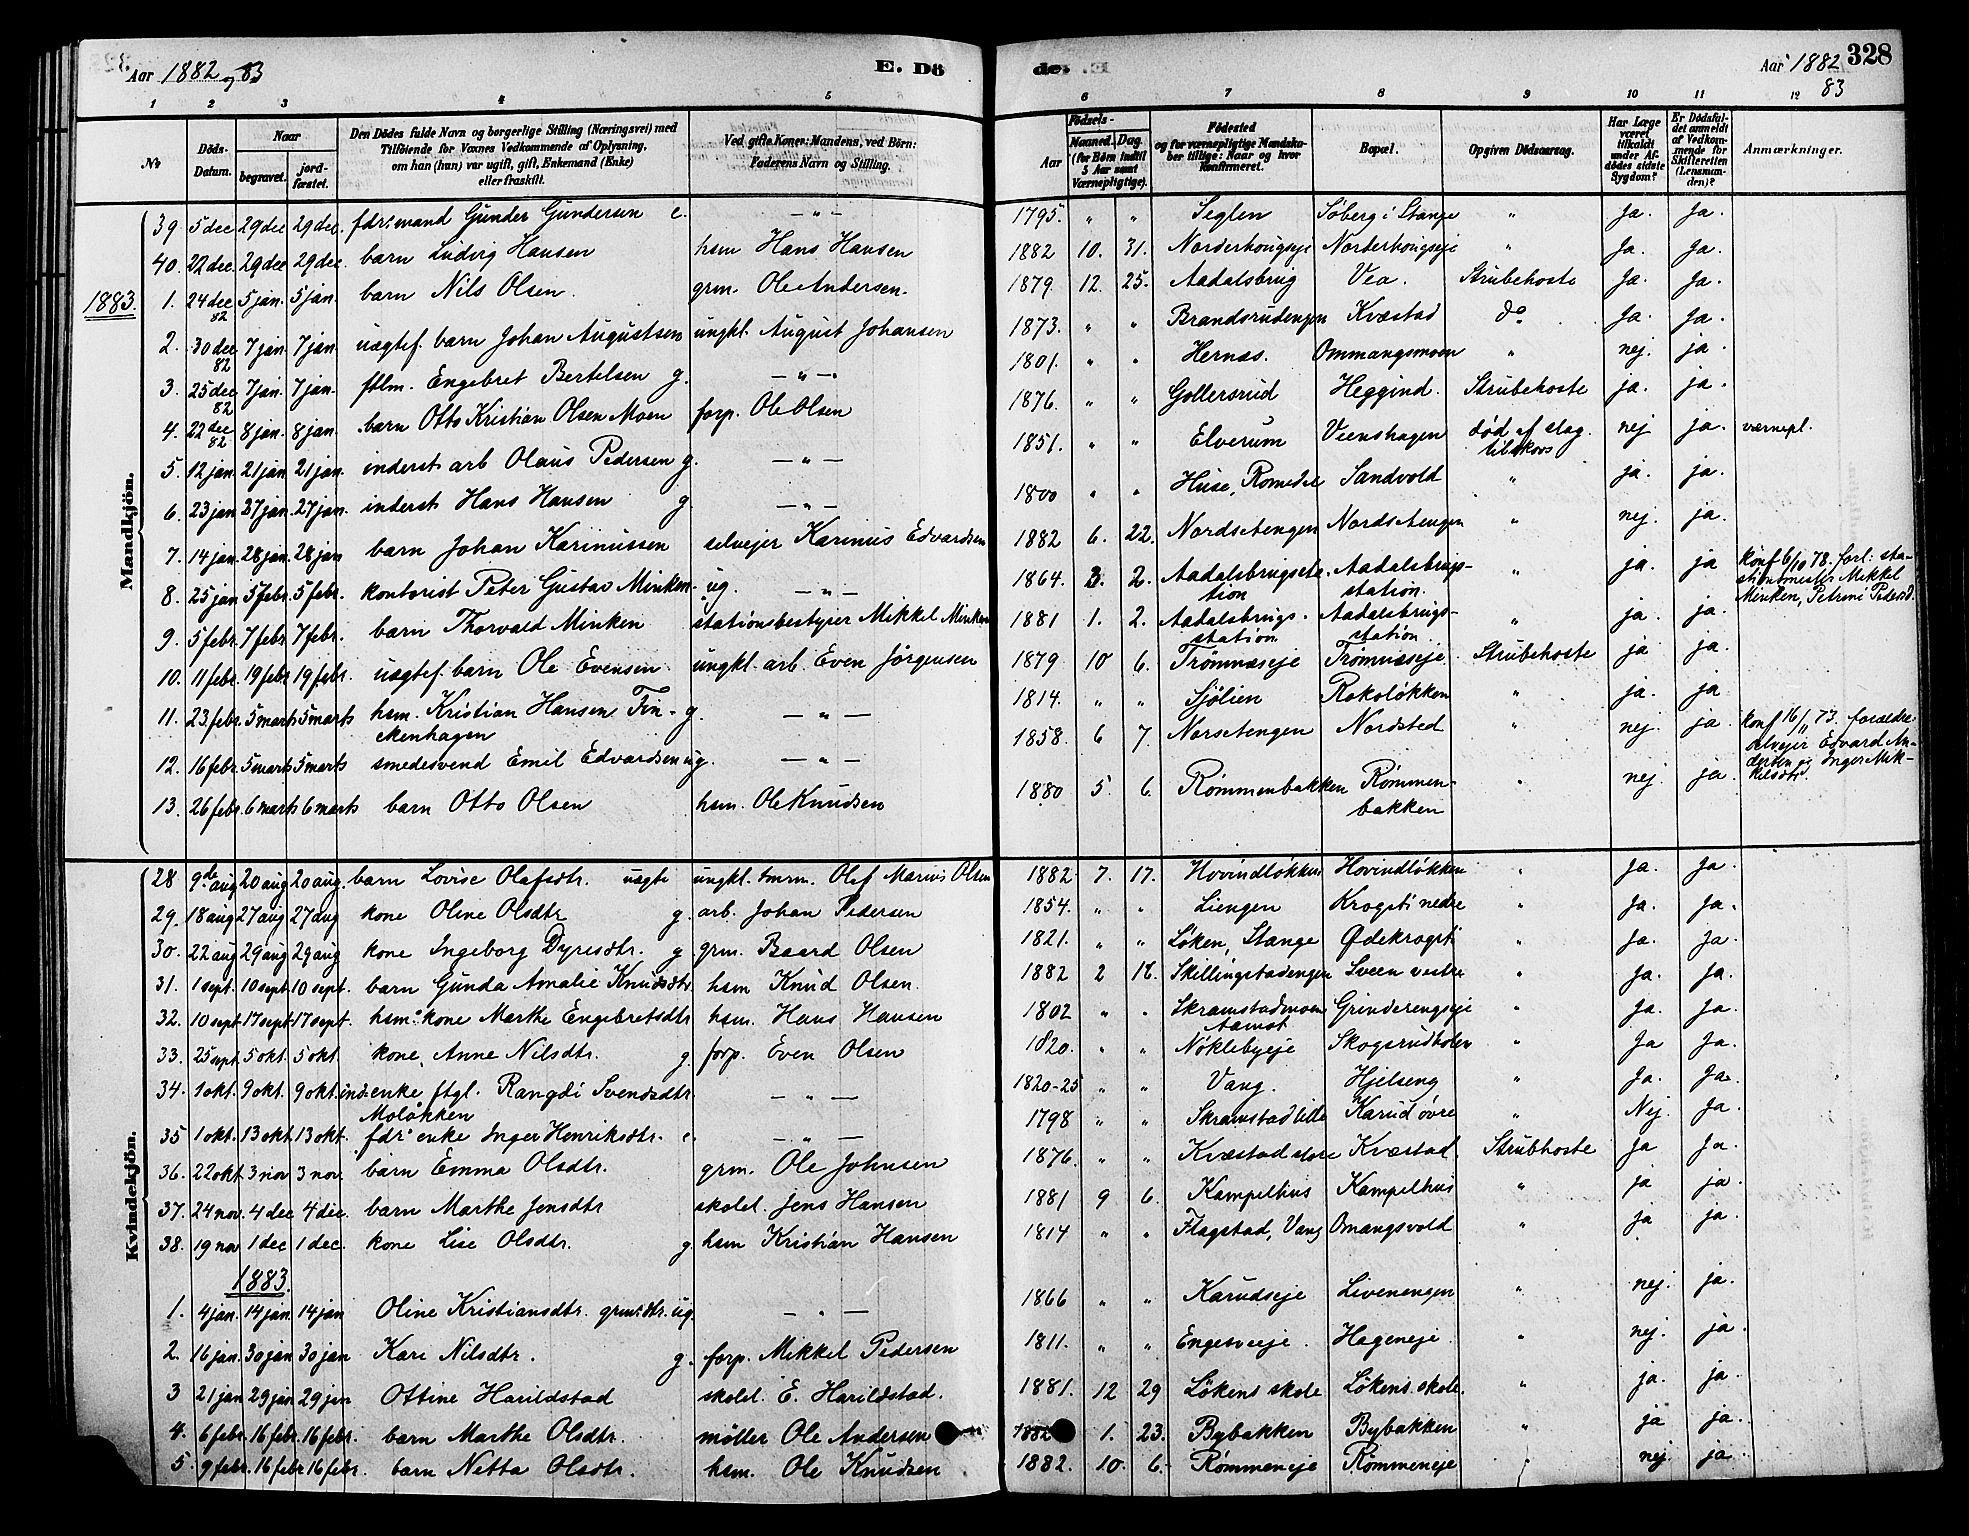 Aar 1882 og 83
E. Dö
de.
Aar 1882 83
328
1 2 3 4 5 6 7 8 9 10 11 12
No
Döds-Datum.
Naar
begravet.
jord-fæstet.
Den Dödes fulde Navn og borgerlige Stilling (Næringsvei) med
Tilföiende for Voxnes Vedkommende af Oplysning,
om han (hun) var ugift, gift, Enkemand (Enke)
eller fraskilt.
Ved gifte Koner: Mandens, ved Börn:
Faderens Navn og Stilling.
Födsels-
Aar
Maaned. Dag.
(for Börn indtil
5 Aar samt
Værnepligtige).
Födested
og for værnepligtige Mandska-
ber tillige: Naar og hvor
Konfirmeret.
Bopæl.
Opgiven Dödsaarsag.
Har Læge
været
tilkaldt
under Af-
dödes sidste
Sygdom?
Er Dödsfal-
det anmeldt
af Vedkom-
mende for
Skifteretten
(Lensman-
den)?
Anmærkninger.
Mandkjön.
39 5 dec 29 dec 29 dec. fdr. mand Gunder Gundersen e. — " — 1795. " " Seglen Søberg i Stange " Ja. Ja.
40. 22 dec. 29 dec 29 dec. barn Ludvig Hansen hsm Hans Hansen 1882 10. 31. Norderhougseje Norderhougseje " Ja. Ja.
1883.
1. 24 dec 82 5 jan. 5 jan. barn Nils Olsen. grm. Ole Andersen. 1879. 12. 25. Aadalsbrug Vea. Strubehoste Ja. Ja.
2. 30 dec 82 7 jan. 7 jan. uægtef. barn Johan Augustsen ungkl. August Johansen 1873. " " Brandsrudengen Kvæstad do Ja. Ja.
3. 25 dec 82 7 jan. 7 jan. ftlm. Engebret Bertelsen g. — " — 1801. " " Hernæs. Ommangsmoen " nej. ja.
4. 22 dec 82 8 jan. 8 jan. barn Otto Kristian Olsen Moen forp. Ole Olsen 1876. " " Gollersrud Heggind. Strubehoste ja. ja.
5. 12 jan 21 jan 21 jan. inderst arb Olaus Pedersen g. — " — 1851. " " Elverum Veenshagen død af slag tilskovs nej ja. værnepl.
6. 23 jan 27 jan. 27 jan. inderst Hans Hansen g. — " — 1800 " " Huse, Romedal Sandvold " ja. ja.
7. 14 jan 28 jan. 28 jan barn Johan Karinussen selvejer Karinus Edvardsen 1882 6. 22. Nordsetengen Nordsetengen " nej. ja.
8. 25 jan 5 febr. 5 febr. kontorist Peter Gustav Minken ug. — " — 1864. 3. 2. Aadalsbrugsstation Aadalsbrugsstation. " ja. ja konf 6/10 78. forl: stationsmester Mikkel Minken, Petrine Pedersd.
9. 5 febr. 7 febr. 7 febr. barn Thorvald Minken stationsbestyrer Mikkel Minken 1881 1. 2. Aadalsbrugsstation Aadalsbrugsstation. " ja. ja.
10. 11 febr. 19 febr. 19 febr. uægtef. barn Ole Evensen ungkl. arb. Even Jørgensen 1879 10 6. Trømnæseje Trømnæseje. Strubehoste ja ja.
11. 23. febr. 5 marts 5 marts hsm. Kristian Hansen Finckenhagen g. — " — 1814. " " Sjølien Rokoløkken " ja. ja
12. 16 febr. 5 marts 5 marts smedesvend Emil Edvardsen ug. — " — 1858. 6 7. Norsetengen Nordsted " nej. ja konf 16/11 73. forældre: selvejer Edvard Andersen og Inger Mikkelsdtr.
13. 26 febr. 6 marts 6 marts barn Otto Olsen hsm. Ole Knudsen 1880 5. 6. Rømmenbakken Rømmenbakken " nej ja.
Kvindekjön.
28 9de aug 20 aug 20 aug. barn Lovise Olafsdtr. uægte ungkl. tmrm. Olaf Marius Olsen 1882 7. 17. Hovindløkken Hovindløkken " Ja. Ja.
29. 18 aug 27 aug 27 aug kone Oline Olsdtr g. arb. Johan Pedersen 1854. " " Liengen Krogsti nedre " Ja. Ja.
30. 22 aug 29 aug 29 aug kone Ingeborg Dyresdtr. g grm. Baard Olsen 1821. " " Løken, Stange Ødekrogsti " Ja. Ja.
31. 1 sept. 10 sept. 10 sept. barn Gunda Amalie Knudsdtr hsm Knud Olsen. 1882 2 18. Skillingstadengen Sveen vestre " Ja. Ja.
32. 10 sept. 17 sept 17 sept. hsm. kone Marthe Engebretsdtr hsm. Hans Hansen 1802 " " Skramstadmoen Aamot Grinderengseje " Ja. Ja.
33. 25 sept. 5 okt. 5 okt. kone, Anne Nilsdtr. g. forp. Even Olsen 1820. " " Nøklebyeje Skogsrudholen " Ja Ja.
34. 1 okt. 9 okt. 9 okt. ind. enke ftgl. Rangdi Svendsdtr Moløkken — " — 1820-25 " " Vang. Hjelseng " Ja. Ja.
35 1 okt. 13 okt. 13 okt. fdr. enke Inger Henriksdtr. e. — " — 1798 " " Skramstad lille Karud øvre " Nej. Ja.
36. 22 okt. 3 nov 3 nov. barn Emma Olsdtr. grm. Ole Johnsen 1876. " " Kvæstad store Kvæstad. Strubhoste Ja Ja.
37. 24 nov. 4 dec 4 dec. barn Marthe Jensdtr skolel. Jens Hansen 1881 9 6. Kampelhus Kampelhus " ja ja.
38. 19 nov 1 dec 1 dec. kone Lise Olsdtr. g. hsm Kristian Hansen 1814 " " Flagstad, Vang Omangsvold " ja ja.
1883.
1. 4 jan. 14 jan. 14 jan Oline Kristiansdtr. grms. dtr. ug. — " — 1866 " " Karudseje Livenengen " nej. ja.
2. 16 jan. 30 jan 30 jan Kari Nilsdtr. g. forp. Mikkel Pedersen 1811. " " Engesveeje. Hageneje. " nej. ja.
3 21 jan 29 jan 29 jan Ottine Harildstad skolel. E. Harildstad. 1881. 12 29 Løkens skole Løkens skole. " ja. ja.
4. 6 febr. 16 febr. 16 febr. barn Marthe Olsdtr. møller Ole Andersen 1882 1. 23. Bybakken Bybakken " ja ja.
5. 9 febr. 16 febr 16 febr. barn Netta Olsdtr. hsm. Ole Knudsen 1882. 10. 6. Rømmeneje Rømmeneje " nej ja.